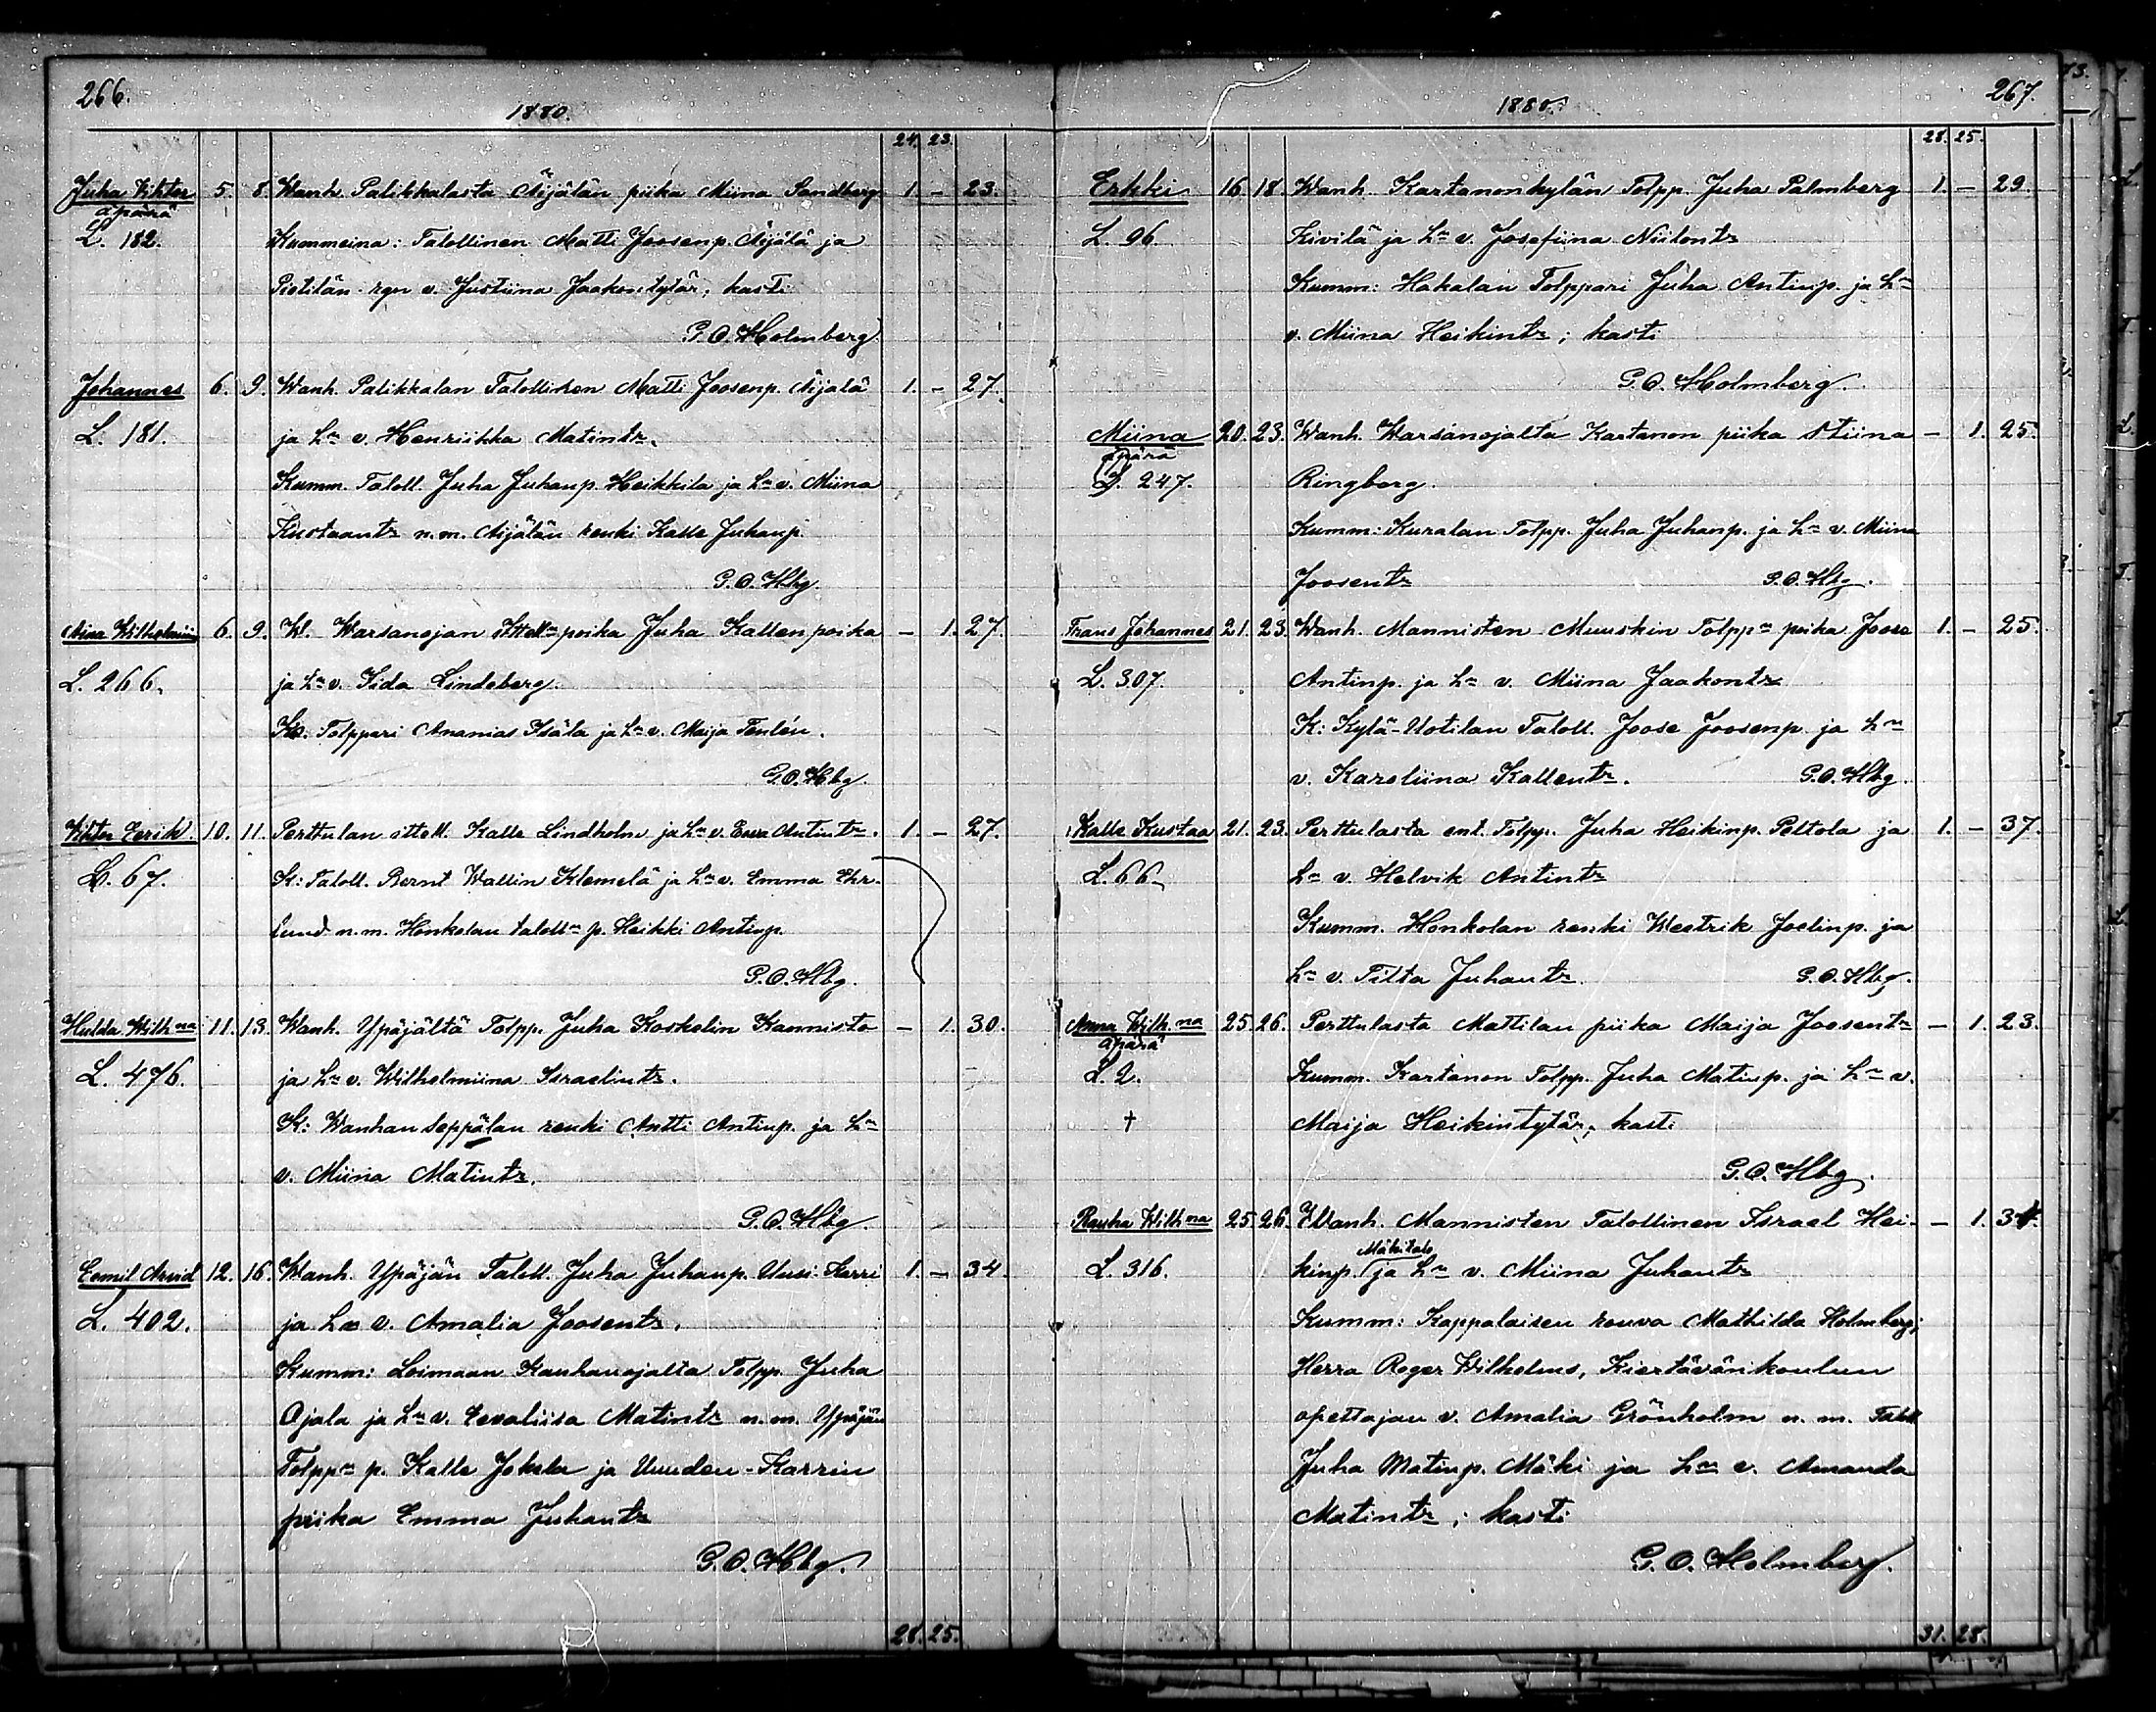 266.
1880.
24. 23.
Juha Viktor 5. 8. Wanh. Palikkalasta Äijälän piika Miina Sandberg 1. - 23.
äpärä
L. 182. Kummeina: Talollinen Matti Joosenp. Äijälä ja
Pietilän rgn v. Justiina Jaakontytär; kasti
G.O. Holmberg
Johannes 6. 9. Wanh. Palikkalan Talollinen Matti Joosenp. Äijälä 1. - 27.
L. 181. ja hn v. Henriikka Matintr.
Kumm. Taloll. Juha Juhanp. Heikkila ja hn v. Miina
Kustaantr n.m. Äijälän renki Kalle Juhanp.
G.O. Hbg.
6. 9. Wl. Warsanojan poika Juha Kallenpoika - 1. 27.
L. 266. ja hn v. Iida Lindeberg.
K: Tolppari Ananias Isäla ja hn v. Maija Tenlén.
G.O. Hbg.
Viktor Eerik 10. 11. Perttulan ittell. Kalle Lindholm ja hn v. Eva Antintr. 1. - 27.
L. 67. K: Taloll. Bernt Wallin Klemelä ja hn v. Emma Ehr-
lund n.m. Honkolan talolln p. Heikki Antinp.
G.O. Hbg.
Hulda Wilhna 11. 13. Wanh. Ypäjältä Tolpp. Juha Koskelin Kannisto - 1. 30.
L. 476. ja hn v. Wilhelmiina Israelintr.
K: Wanhan Seppälan renki Antti Antinp. ja hn
v. Miina Matintr.
G.O. Hbg.
Eemil Arvid 12. 16. Wanh. Ypäjän Taloll. Juha Juhanp. Uusi Karri 1. - 34.
L. 402. ja hn v. Amalia Joosentr.
Kumm: Loimaan Kauhanojalta Tolpp. Juha
Ojala ja hn v. Eevaliisa Matintr n.m. Ypäjän
Tolppn p. Kalle Jokela ja Uuden-Karrin
piika Emma Juhantr
G.O. Hbg.
28. 25.
267.
1880.
28. 25.
Erkki 16. 18. Wanh. Kartanonkylän Tolpp. Juha Palmberg 1. - 29.
L. 96 Kivilä ja hn v. Josefiina Niilontr
Kumm: Hakalan Tolppari Juha Antinp. ja hn
v. Miina Heikintr; kasti
G.O. Holmberg.
Miina 20. 23. Wanh. Warsanojalta Kartanon piika Stiina - 1. 25.
äpärä
L. 247. Ringberg.
Kumm: Kuralan Tolpp. Juha Juhanp. ja hn v. Miina
Joosentr G.O. Hbg.
Frans Johannes 21. 23. Wanh. Mannisten Muuskin Tolppn poika Joose 1. - 25.
L. 307. Antinp. ja hn v. Miina Jaakontr
K: Kylä-Uotilan Taloll. Joose Joosenp. ja hn
v. Karoliina Kallentr. G.O. Hbg.
Kalle Kustaa 21. 23. Perttulasta ent. Tolpp. Juha Heikinp. Peltola ja 1. - 37.
L. 66. hn v. Helvik Antintr
Kumm. Honkolan renki Westrik Joelinp. ja
hn v. Tilta Juhantr. G.O. Hbg.
Anna Wilh.na 25. 26. Perttulasta Mattilan piika Maija Joosentr - 1. 23.
äpärä
L. 2. Kumm. Kartanon Tolpp. Juha Matinp. ja hn v.
† Maija Heikintytär; kasti
G.O. Hbg.
Rauha Wilhna 25. 26. Wanh. Mannisten Talollinen Israel Hei- - 1.
Mäkitalo
L. 316. kinp. ja hn v. Miina Juhantr
Kumm: Kappalaisen rouva Mathilda Holmberg;
Herra Roger Wilhelms, Kiertävänkoulun
opettajan v. Amalia Grönholm n. m. Taloll
Juha Matinp. Mäki ja hn v. Amanda
Matintr; kasti
G.O. Holmberg.
31. 28.